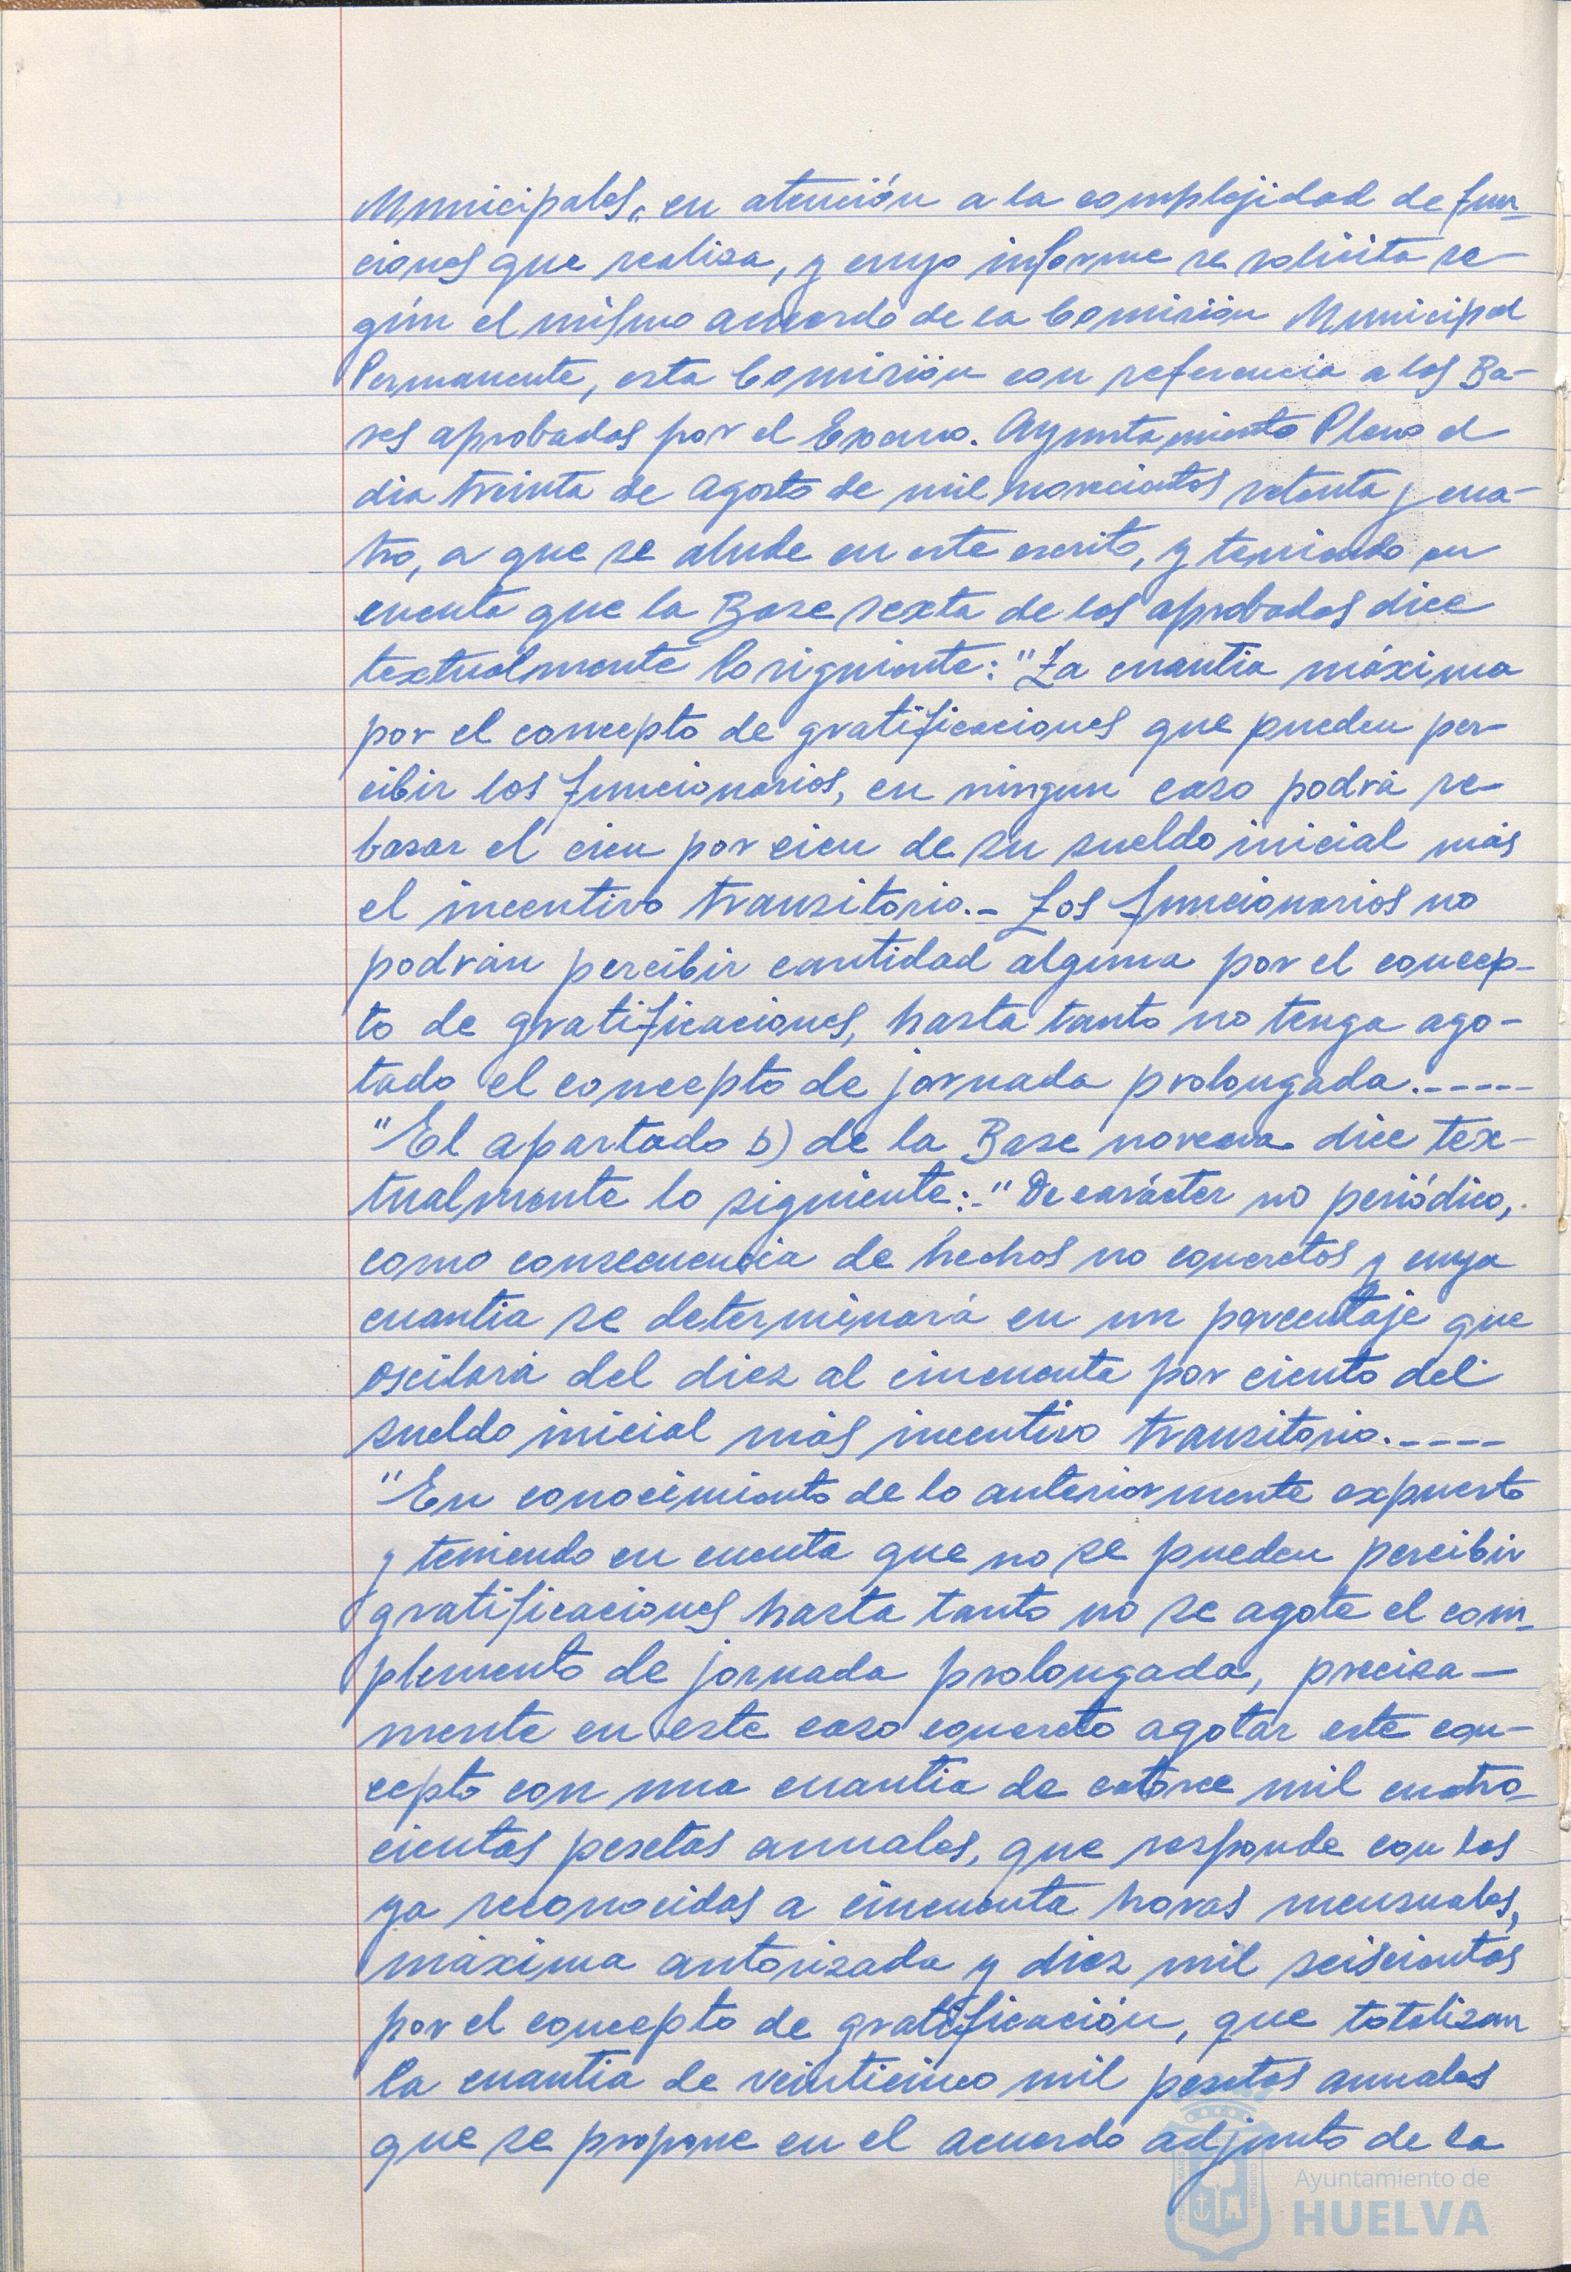 Municipales, en atención a la complejidad de fun-
ciones que realiza, y cuyo informe se solicita se-
gún el mismo acuerdo de la Comisión Municipal
Permanente, esta Comisión con referencia a las Ba-
ses aprobadas por el Excmo. Ayuntamiento Pleno el
dia treinta de Agosto de mil novecientos setenta y cua-
tro, a que se alude en este escrito, y teniendo en
cuenta que la Base sexta de las aprobadas dice
textualmente lo siguiente: "La cuantia máxima
por el concepto de gratificaciones que pueden per-
cibir los funcionarios, en ningun caso podrá re-
basar el cien por cien de su sueldo inicial más
el incentivo transitorio.- Los funcionarios no
podrán percibir cantidad alguna por el concep-
to de gratificaciones, hasta tanto no tenga ago-
tado el concepto de jornada prolongada.-----
"El apartado b) de la Base novena dice tex-
tualmente lo siguiente:-"De carácter no periódico,
como consecuencia de hechos no concretos y cuya
cuantia se determinará en un porcentaje que
oscilará del diez al cincuenta por ciento del
sueldo inicial más incentivo transitorio.-----
"En conocimiento de lo anteriormente expuesto
y teniendo en cuenta que no se pueden percibir
gratificaciones hasta tanto no se agote el com-
plemento de jornada prolongada, precisa-
mente en este caso concreto agotar este con-
cepto con una cuantia de catorce mil cuatro-
cientas pesetas anuales, que responde con las
ya reconocidas a cincuenta horas mensuales,
máxima autorizada y diez mil seiscientas
por el concepto de gratificación, que totalizan
la cuantia de veinticinco mil pesetas anuales
que se propone en el acuerdo adjunto de la
Ayuntamiento de
HUELVA